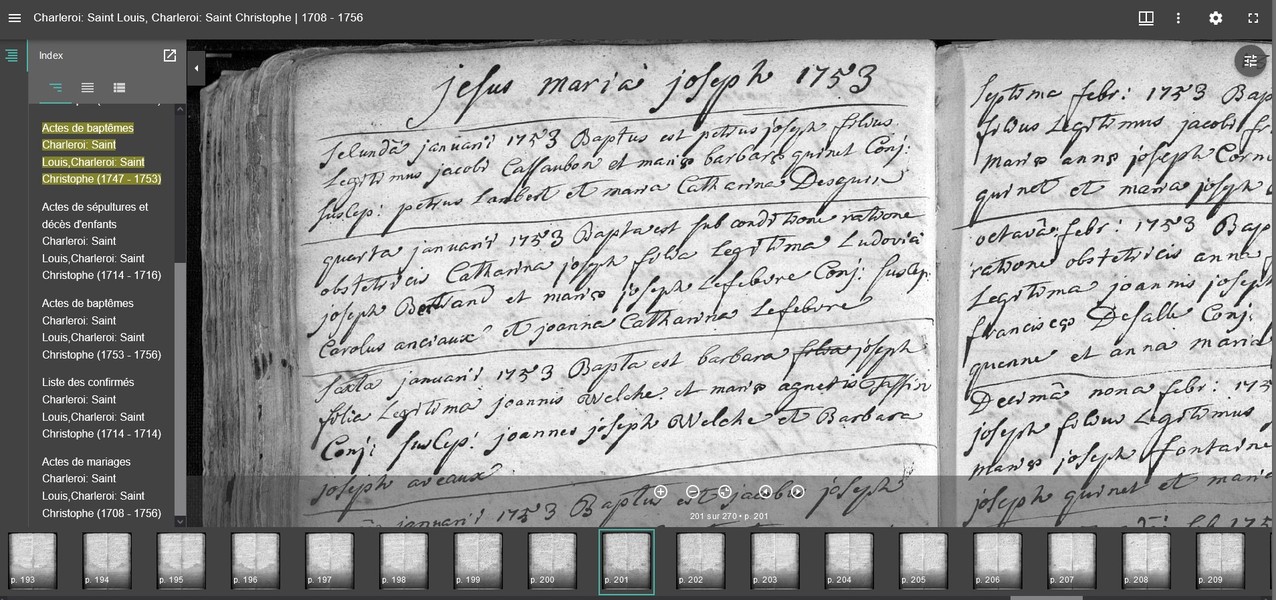 Charleroi: Saint Louis, Charleroi: Saint Christophe | 1708 - 1756
Index
Actes de baptêmes
Charleroi: Saint
Louis,Charleroi: Saint
Christophe (1747 - 1753)
Actes de sépultures et
décès d'enfants
Charleroi: Saint
Louis,Charleroi: Saint
Christophe (1714 - 1716)
Actes de baptêmes
Charleroi: Saint
Louis,Charleroi: Saint
Christophe (1753 - 1756)
Liste des confirmés
Charleroi: Saint
Louis,Charleroi: Saint
Christophe (1714 - 1714)
Actes de mariages
Charleroi: Saint
Louis,Charleroi: Saint
Christophe (1708 - 1756)
jesus maria joseph 1753
Secunda januarii 1753 Baptus est petrus joseph filius
Legitimus jacobi Cassaubon et mariæ barbaræ quinet Conj:
suscep: petrus Lambert et maria Catharina
quarta januarii 1753 Bapta est sub conditione ratione
obstetricis Catharina joseph filia Legitima Ludovici
joseph Bertrand et mariæ joseph Lefebvre Conj: suscep:
Carolus anciaux et joanna Catharina Lefebvre
sexta januarii 1753 Bapta est barbara joseph
filia Legitima joannis Welche et mariæ agnetis
Conj: suscep: joannes joseph Welche et Barbara
joseph aveaux
januarii 1753 Baptus est jacobus joseph
septima febr: 1753 Bap
filius Legitimus jacobi fr
mariæ annæ joseph Corn
quinet et maria joseph
octava febr: 1753 Bap
ratione obstetricis anna
Legitima joannis joseph
franciscæ Desalle Conj:
et anna maria
Decima nona febr: 175
joseph filius Legitimus
mariæ joseph fontaine
joseph quinet et maria
201 sur 270 • p. 201
p. 193
p. 194
p. 195
p. 196
p. 197
p. 198
p. 199
p. 200
p. 201
p. 202
p. 203
p. 204
p. 205
p. 206
p. 207
p. 208
p. 209